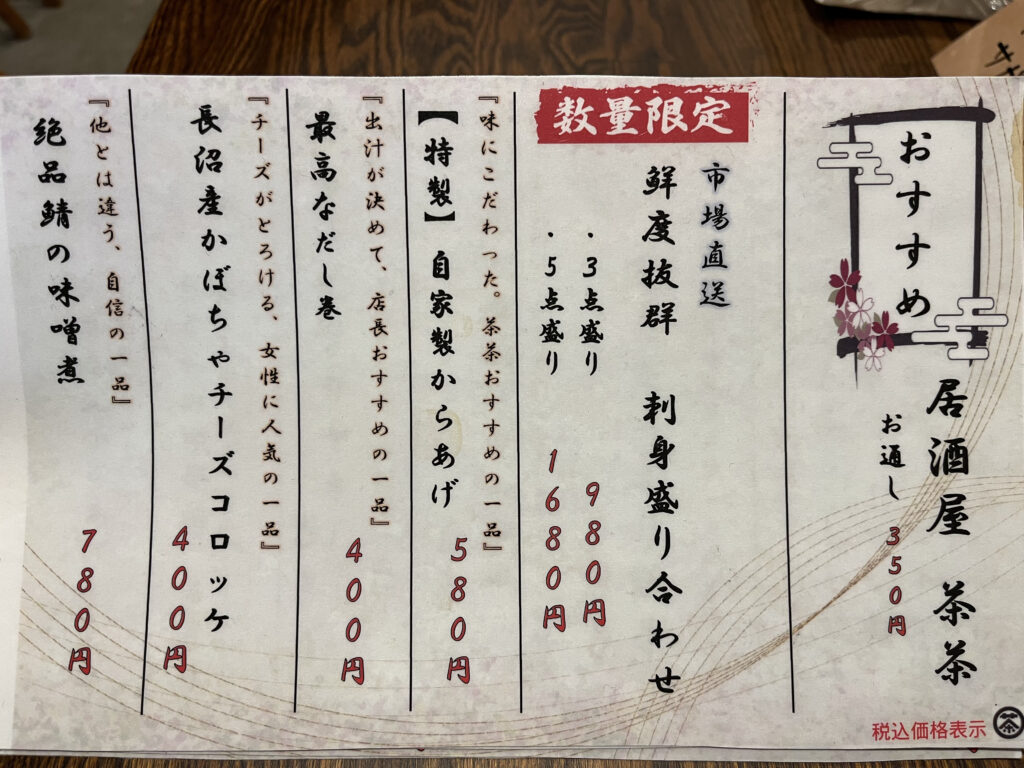 おすすめ
居酒屋 茶茶
お通し 350円
数量限定
市場直送
鮮度抜群 刺身盛り合わせ
・3点盛り 980円
・5点盛り 1680円
『味にこだわった。茶茶おすすめの一品』
【特製】自家製からあげ 580円
『出汁が決めて、店長おすすめの一品』
最高なだし巻 400円
『チーズがとろける、女性に人気の一品』
長沼産かぼちゃチーズコロッケ 400円
『他とは違う、自信の一品』
絶品鯖の味噌煮 780円
税込価格表示
茶